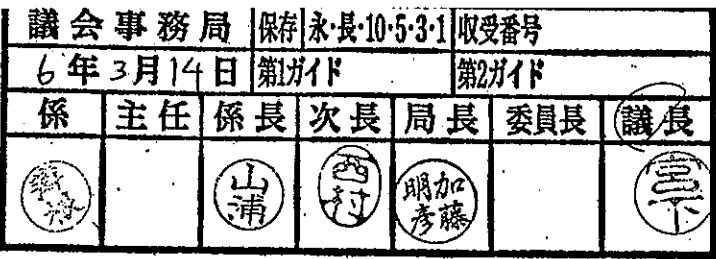 議会事務局 保存 永・長・10・5・3・1 収受番号
6年3月14日 第1ガイド 第2ガイド
係 主任 係長 次長 局長 委員長 議長
山浦 西村 加藤明彦 宮下